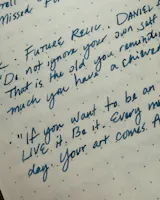 Missed F
E FUTURE RELIC. DANIEL A
"Do not ignore your own self
That is the old you reminding
much you have achieved
"If you want to be an
Live it. Be it. Every m
day. Your art comes. A